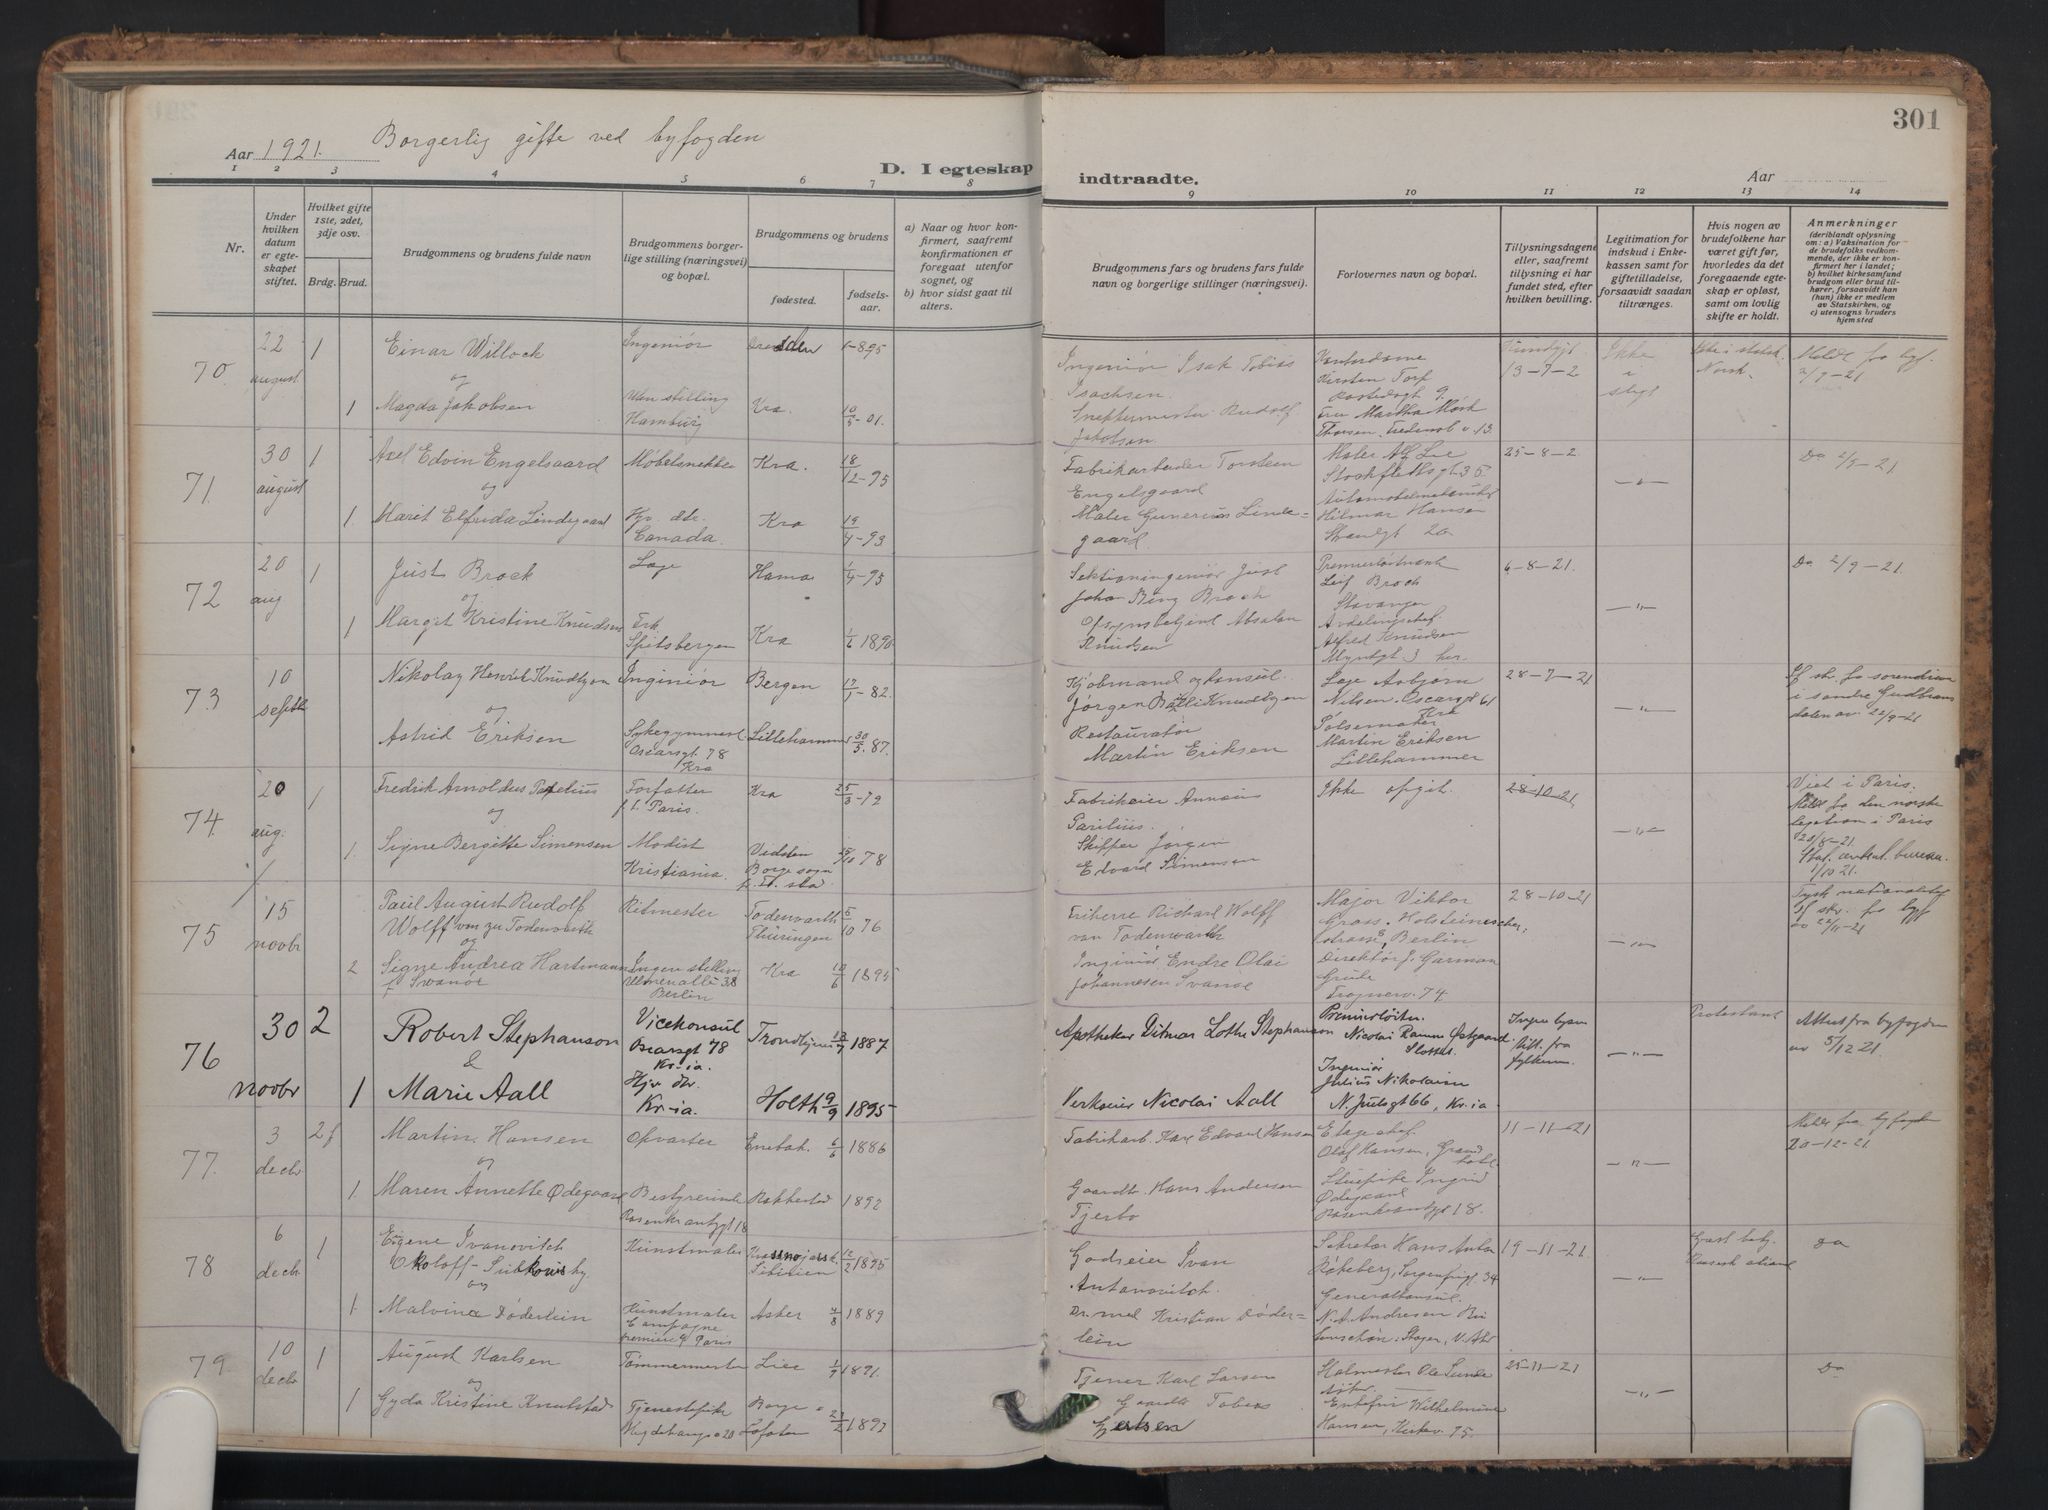 301
Aar 1921. Borgerlig gifte ved byfogden
D. I egteskap indtraadte.
Aar
1 2 3 4 5 6 7 8 9 10 11 12 13 14
Nr.
Under hvilken datum er egteskapet stiftet.
Hvilket gifte 1ste, 2det, 3dje osv.
Brdg. Brud.
Brudgommens og brudens fulde navn
Brudgommens borgerlige stilling (næringsvei) og bopæl.
Brudgommens og brudens
fødested.
fødselsaar.
a) Naar og hvor konfirmert, saafremt konfirmationen er foregaaet utenfor sognet, og
b) hvor sidst gaat til alters.
Brudgommens fars og brudens fars fulde navn og borgerlige stillinger (næringsvei).
Forlovernes navn og bopæl.
Tillysningsdagene eller, saafremt tillysning ei har fundet sted, efter hvilken bevilling.
Legitimation for indskud i Enkekassen samt for giftetilladelse, forsaavidt saadan tiltrænges.
Hvis nogen av brudefolkene har været gift før, hvorledes da det foregaaende egteskap er opløst, samt om lovlig skifte er holdt.
Anmerkninger (deriblandt oplysning om: a) Vaksination for de brudefolks vedkommende, der ikke er konfirmert her i landet; b) hvilket kirkesamfund brudgom eller brud tilhører, forsaavidt han (hun) ikke er medlem av Statskirken, og c) utensogns bruders hjemsted
70. 22 august 1 Einar Willock Ingeniør 1-895
Ingeniør Isak Tobias Isachsen. Kontordame Kirsten Torp 13-7-2 Ikke i slegt Melde fra byf. 2/9-21
og
1 Magda Jakobsen Uten stilling Hamburg Kra. 10/5-01.
Rudolf Jakobsen Fru Martha Mørk Thorsen.
71. 30 august 1 Axel Edvin Engelsaard Møbelsnekker Kra. 18/12-95
Fabrikarbeider Torstein Engelsgaard Maler Alf Lie Stockflethsgt. 35 25-8-2 Do 2/9-21
og
1. Marit Elfrida Lindegaard Hjv. dtr. Canada. Kra 19/4-93
Maler Gunerius Lindegaard. Hilmar Hansen Strandgt 20
72 20 aug 1 Just Brock Læge Hamar 1/4-95
Just Johan Bing Broch Premierløitnant Leif Broch Stavanger 6-8-21. Do 2/9-21.
og
1 Margit Kristine Knudsen Frk Spitsbergen Kra 1/6 1890
Absalon Knudsen Avdelingschef Alfred Knudsen Myntgt 3 her.
73 10 septbr Nikolay Henrik Knudtzon Ingeniør Bergen 17/1-82.
Kjøbmand og konsul Jørgen B. Knudtzon Læge Asbjørn Nilsen. Oscarsgt 61 Kra 28-7-21
og
Astrid Eriksen Sykegymnast. Oscarsgt. 78 Kra Lillehammer 30/5-87.
Restauratør Martin Eriksen Pølsemaker Martin Eriksen Lillehammer
74. 20 aug. 1 Fredrik Arnoldus Forfatter f. t. Paris. Kra 25/3-72
Fabrikeier Ikke opgit. 28-10-21 Viet i Paris. Meld. fra den norske legation i Paris 20/8-21.
og
1. Signe Bergitte Simensen Modist Kristiania. Borge sogn
Skipper Jørgen Edvard Simensen 1/10 21.
75 15 novbr Paul August Rudolf Wolff von zu Todenwarth Ritmester Todenwarth Thüringen 5/10 76
Friherre Richard Wolff von Todenwarth Major Viktor Berlin 28-10-21 Tysk
og
2 Signe Andrea Hartmann f. Svanøe Ingen stilling Berlin Kra 10/6 1895
Ingeniør Endre Olai Johannesen Svanøe Direktør J. Garman Grube Frognerv. 74.
76 30 novbr 2 Robert Stephanson Vicekonsul Oscarsgt 78 Kr.ia. Trondhjem 13/7 1887
Apotheker Ditmar Lothe Stephanson Premierløitn. Nicolai Ramm Østgaard Slottet. Ingen lysn. till. fra fylkem. Protestant Attest fra byfogden av 5/12 21.
&
1 Marie Aall Hjv dtr. Kr-ia. Holth 9/9 1895
Verkseier Nicolai Aall Ingeniør Julius Nikolaisen N. Juelsgt 66, Kr.ia
77. 3 decbr 2 Martin Hansen Opvarter Enebak. 6/6 1886
Fabrikarb. Karl Edvard Hansen Etagechef Olaf Hansen, Grand hotel 11-11-21 Meld fra byfogden 20-12-21.
og
1. Maren Annette Ødegaard Bestyrerinde Rosenkrantzgt 18 Rakkestad 1892
Gaardb. Hans Andersen Tjerbo Ingrid Ødegaard Rosenkrantzgt 18.
78 6 decbr. 1 Eugene Ivanovitch Okoloff- Kunstmaler Krassnojarsk. Sibirien 12/2 1895
Godseier Ivan Antonovitch. Sekretær Hans Anton Sorgenfrigt. 34 19-11-21. Do
og
1. Malvina Døderlein Kunstmaler Paris Asker 4/8 1889
Dr. med Kristian Døderlein Generalkonsul. N. A. Andresen
79. 10 decbr 1 August Karlsen Tømmermester Lier 1/9 1891.
Tjener Karl Larsen 25-11-21 Do
og
1 Gyda Kristine Knulstad Tjenestepike Borge Lofoten 27/2 1892
Gaardb Tobias Gjertsen Wilhelmine Hansen, Kirkev. 75.